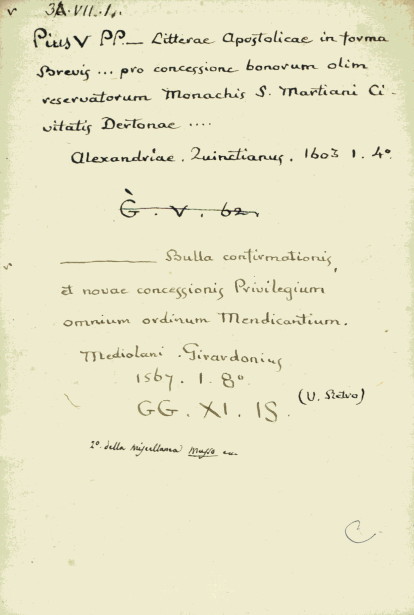 3A.VII.1.
Pius V PP. — Litterae Apostolicae in forma
Brevis ... pro concessione bonorum olim
reservatorum Monachis S. Martiani Ci-
vitatis Dertonae ....
Alexandriae. Quinctianus. 1603 1. 4º
G. V. 62.
——— Bulla confirmationis,
et novae concessionis Privilegium
omnium ordinum Mendicantium.
Mediolani. Girardonius
1567. 1. 8º
GG. XI. 15. (V. Retro)
2º della miscellanea
C